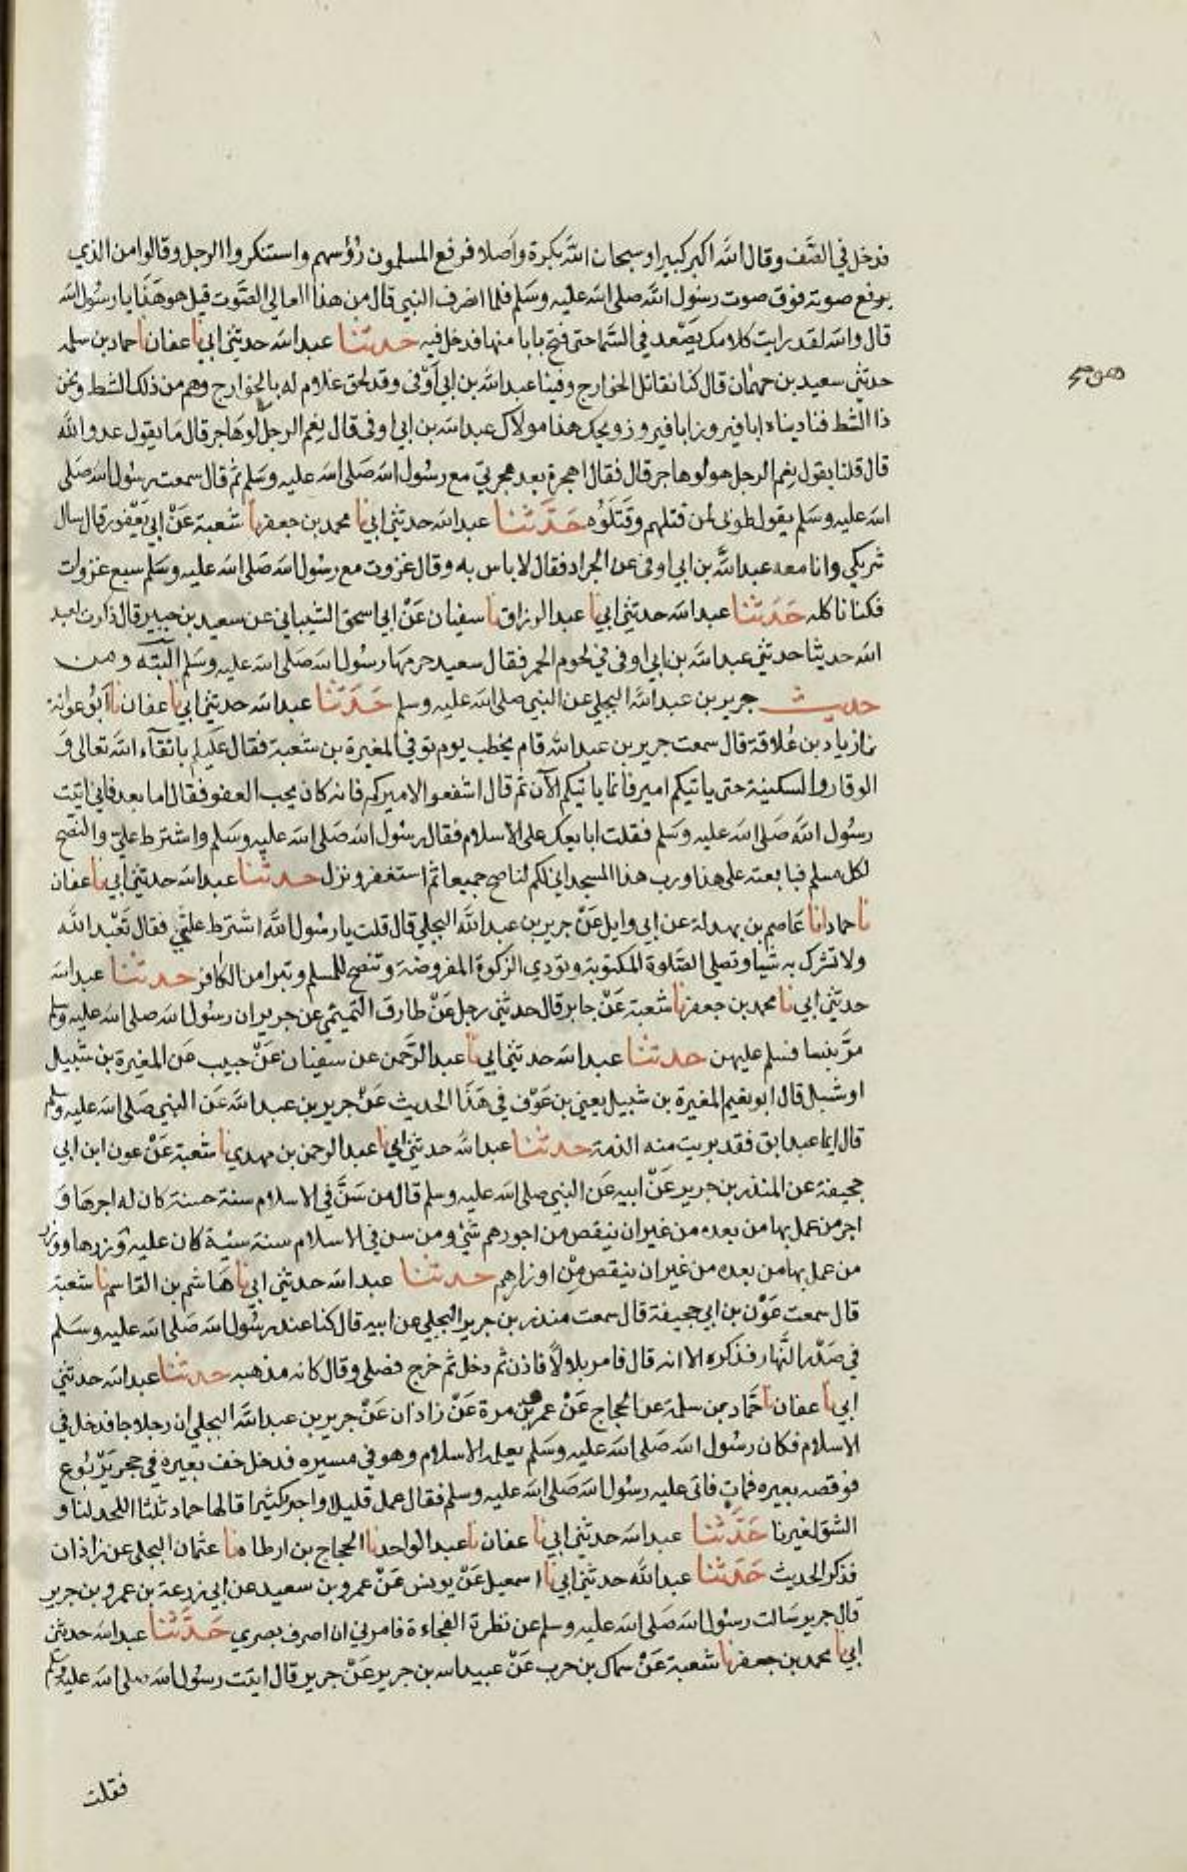 فدخل في الصف وقال الله اكبر كبيرا وسبحان الله بكرة واصلا فرفع المسلمون رؤسهم واستنكروا الرجل وقالوا من الذي
يرفع صوته فوق صوت رسول الله صلى الله عليه وسلم فلما انصرف النبي قال من هذا العالي الصوت قيل هو هذا يا رسول الله
قال والله لقد رايت كلامك يصعد في السما حتى فتح بابا منها فدخل فيه حدثنا عبد الله حدثني ابي نا عفان نا حماد بن سلمه
حدثني سعيد بن جمهان قال كنا نقاتل الخوارج وفينا عبد الله بن ابي اوفى وقد لحق غلام له بالخوارج وهم من ذلك الشط ونحن
ذا الشط فناديناه ابا فيروز ابا فيروز ويحك هذا مولاك عبد الله بن ابي اوفى قال نعم الرجل لو هاجر قال ما يقول عدو الله
قال قلنا يقول نعم الرجل هو لو هاجر قال فقال اهجرة بعد هجرتي مع رسول الله صلى الله عليه وسلم ثم قال سمعت رسول الله صلى
الله عليه وسلم يقول طوبى لمن قتلهم وقتلوه حدثنا عبد الله حدثني ابي نا محمد بن جعفر نا شعبة عن ابي يعفور قال سال
شريكي وانا معه عبد الله بن ابي اوفى عن الجراد فقال لا باس به وقال غزوت مع رسول الله صلى الله عليه وسلم سبع غزوات
فكنا ناكله حدثنا عبد الله حدثني ابي نا عبد الرزاق نا سفيان عن ابي اسحق الشيباني عن سعيد بن جبير قال ذاربت لعبد
الله حديثا حدثني عبد الله بن ابي اوفى في لحوم الحمر فقال سعيد حرمها رسول الله صلى الله عليه وسلم البتة ومن
حديث جرير بن عبد الله البجلي عن النبي صلى الله عليه وسلم حدثنا عبد الله حدثني ابي نا عفان نا ابو عوانة
نا زياد بن علاقة قال سمعت جرير بن عبد الله قام يخطب يوم توفي المغيرة بن شعبة فقال عليكم باتقاء الله تعالى و
الوقار والسكينة حتى ياتيكم امير فانما ياتيكم الآن ثم قال اشفعوا لاميركم فانه كان يحب العفو فقال اما بعد فاني اتيت
رسول الله صلى الله عليه وسلم فقلت ابايعك على الاسلام فقال رسول الله صلى الله عليه وسلم واشترط علي والنصح
لكل مسلم فبايعته على هذا ورب هذا المسجد اني لكم لناصح جميعا ثم استغفر ونزل حدثنا عبد الله حدثني ابي نا عفان
نا حماد انا عاصم بن بهدلة عن ابي وايل عن جرير بن عبد الله البجلي قال قلت يا رسول الله اشترط علي فقال تعبد الله
ولا تشرك به شيا وتصلي الصلوة المكتوبة وتودي الزكوة المفروضة وتنصح للمسلم وتبرا من الكافر حدثنا عبد الله
حدثني ابي نا محمد بن جعفر نا شعبة عن جابر قال حدثني رجل عن طارق التميمي عن جرير ان رسول الله صلى الله عليه وسلم
مر بنسا فسلم عليهن حدثنا عبد الله حدثني ابي نا عبد الرحمن عن سفيان عن حبيب عن المغيرة بن شبيل
او شبل قال ابو نعيم المغيرة بن شبيل يعني بن عوف في هذا الحديث عن جرير بن عبد الله عن النبي صلى الله عليه وسلم
قال ايما عبد ابق فقد بريت منه الذمة حدثنا عبد الله حدثني ابي نا عبد الرحمن بن مهدي نا شعبة عن عون ابن ابي
جحيفة عن المنذر بن جرير عن ابيه عن النبي صلى الله عليه وسلم قال من سن في الاسلام سنة حسنة كان له اجرها و
اجر من عمل بها من بعده من غير ان ينقص من اجورهم شئ ومن سن في الاسلام سنة سئية كان عليه وزرها ووزر
من عمل بها من بعده من غير ان ينقص من اوزارهم حدثنا عبد الله حدثني ابي نا هاشم بن القاسم نا شعبة
قال سمعت عون بن ابي جحيفة قال سمعت منذر بن جرير البجلي عن ابيه قال كنا عند رسول الله صلى الله عليه وسلم
في صدر النهار فذكره الا انه قال فامر بلالا فاذن ثم دخل ثم خرج فصلى وقال كانه مذهبه حدثنا عبد الله حدثني
ابي نا عفان نا حماد بن سلمة عن الحجاج عن عمرو بن مرة عن زاذان عن جرير بن عبد الله البجلي ان رجلا جا فدخل في
الاسلام فكان رسول الله صلى الله عليه وسلم يعلمه الاسلام وهو في مسيره فدخل خف بعيره في جحر يربوع
فوقصه بعيره فمات فاتى عليه رسول الله صلى الله عليه وسلم فقال عمل قليلا واجر كثيرا قالها حماد ثلثا اللحد لنا و
الشق لغيرنا حدثنا عبد الله حدثني ابي نا عفان نا عبد الواحد نا الحجاج بن ارطاه نا عثمان البجلي عن زاذان
فذكر الحديث حدثنا عبد الله حدثني ابي نا اسمعيل عن يونس عن عمرو بن سعيد عن ابي زرعة بن عمرو بن جرير
قال جرير سالت رسول الله صلى الله عليه وسلم عن نظرة الفجاءة فامرني ان اصرف بصري حدثنا عبد الله حدثني
ابي نا محمد بن جعفر نا شعبة عن سماك بن حرب عن عبيد الله بن جرير عن جرير قال اتيت رسول الله صلى الله عليه وسلم
فقلت